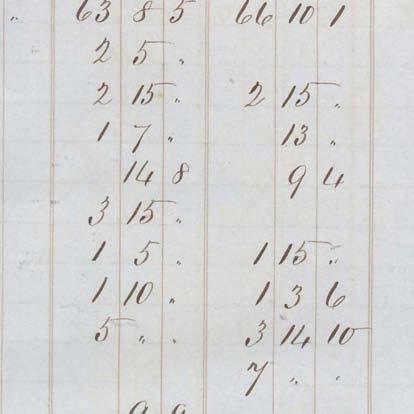 〃 63 8 5 66 10 1
2 5 〃
2 15 〃 2 15 〃
1 7 〃 13 〃
14 8 9 4
3 15 〃
1 5 〃 1 15 〃
1 10 〃 1 3 6
5 〃 〃 3 14 10
7 〃 〃